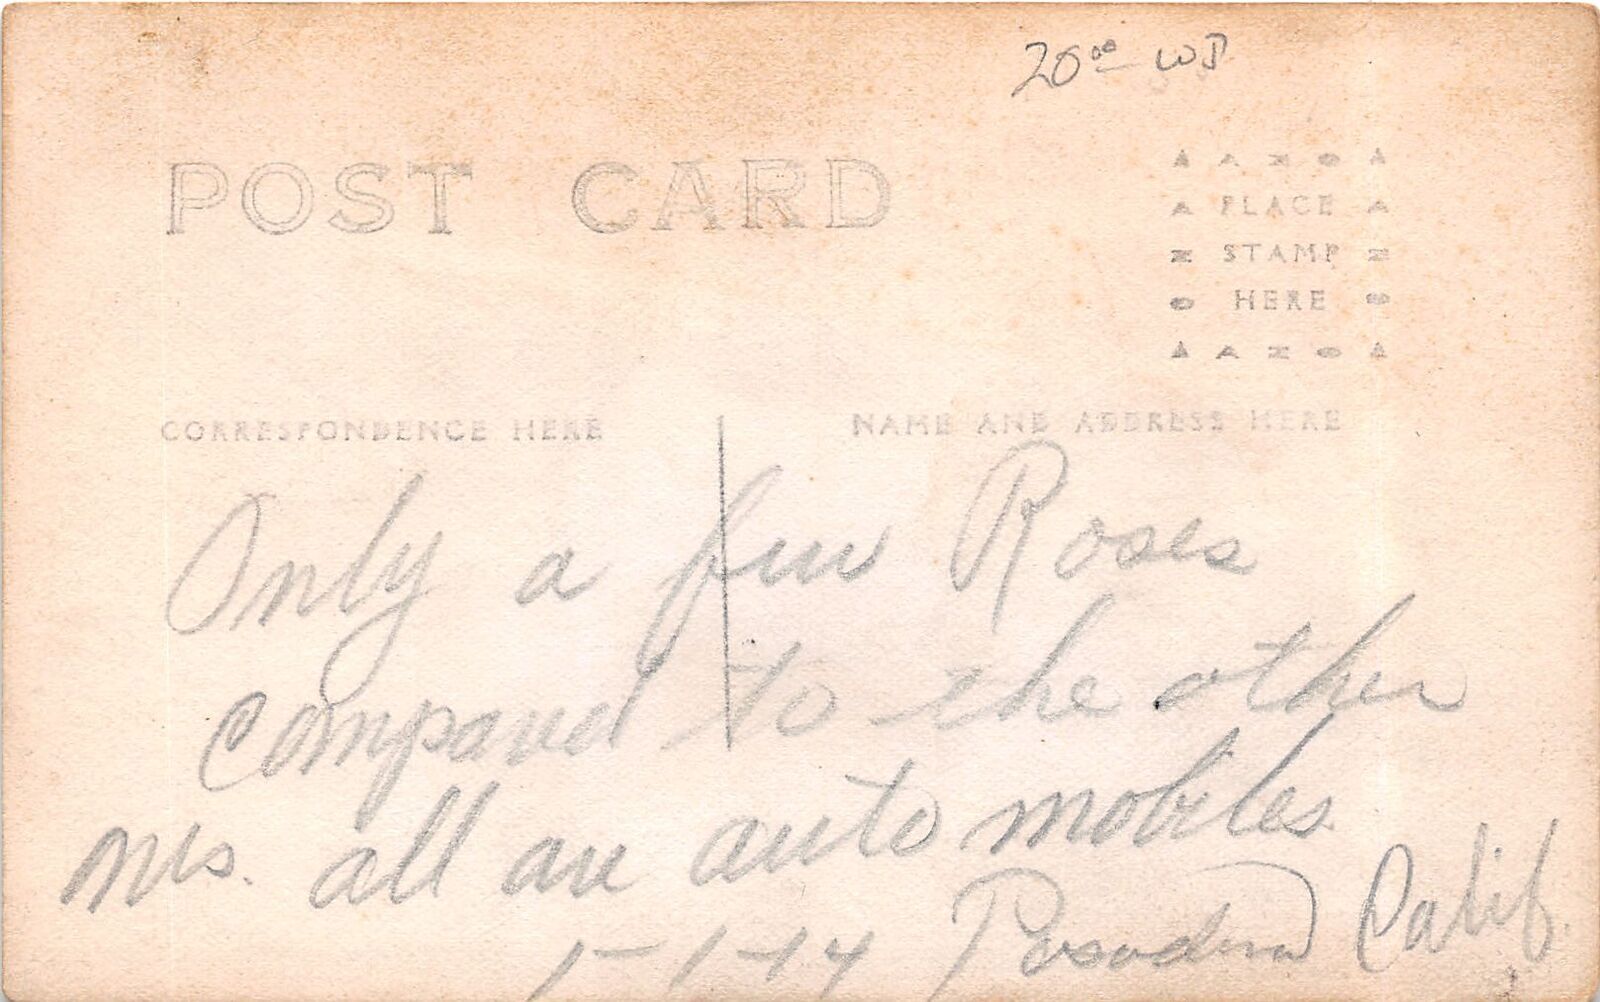 20⁰⁰ WB
POST CARD
PLACE
STAMP
HERE
CORRESPONDENCE HERE
NAME AND ADDRESS HERE
Only a few Roses
compared to the other
all are automobiles
1-1-14 Pasadena Calif.